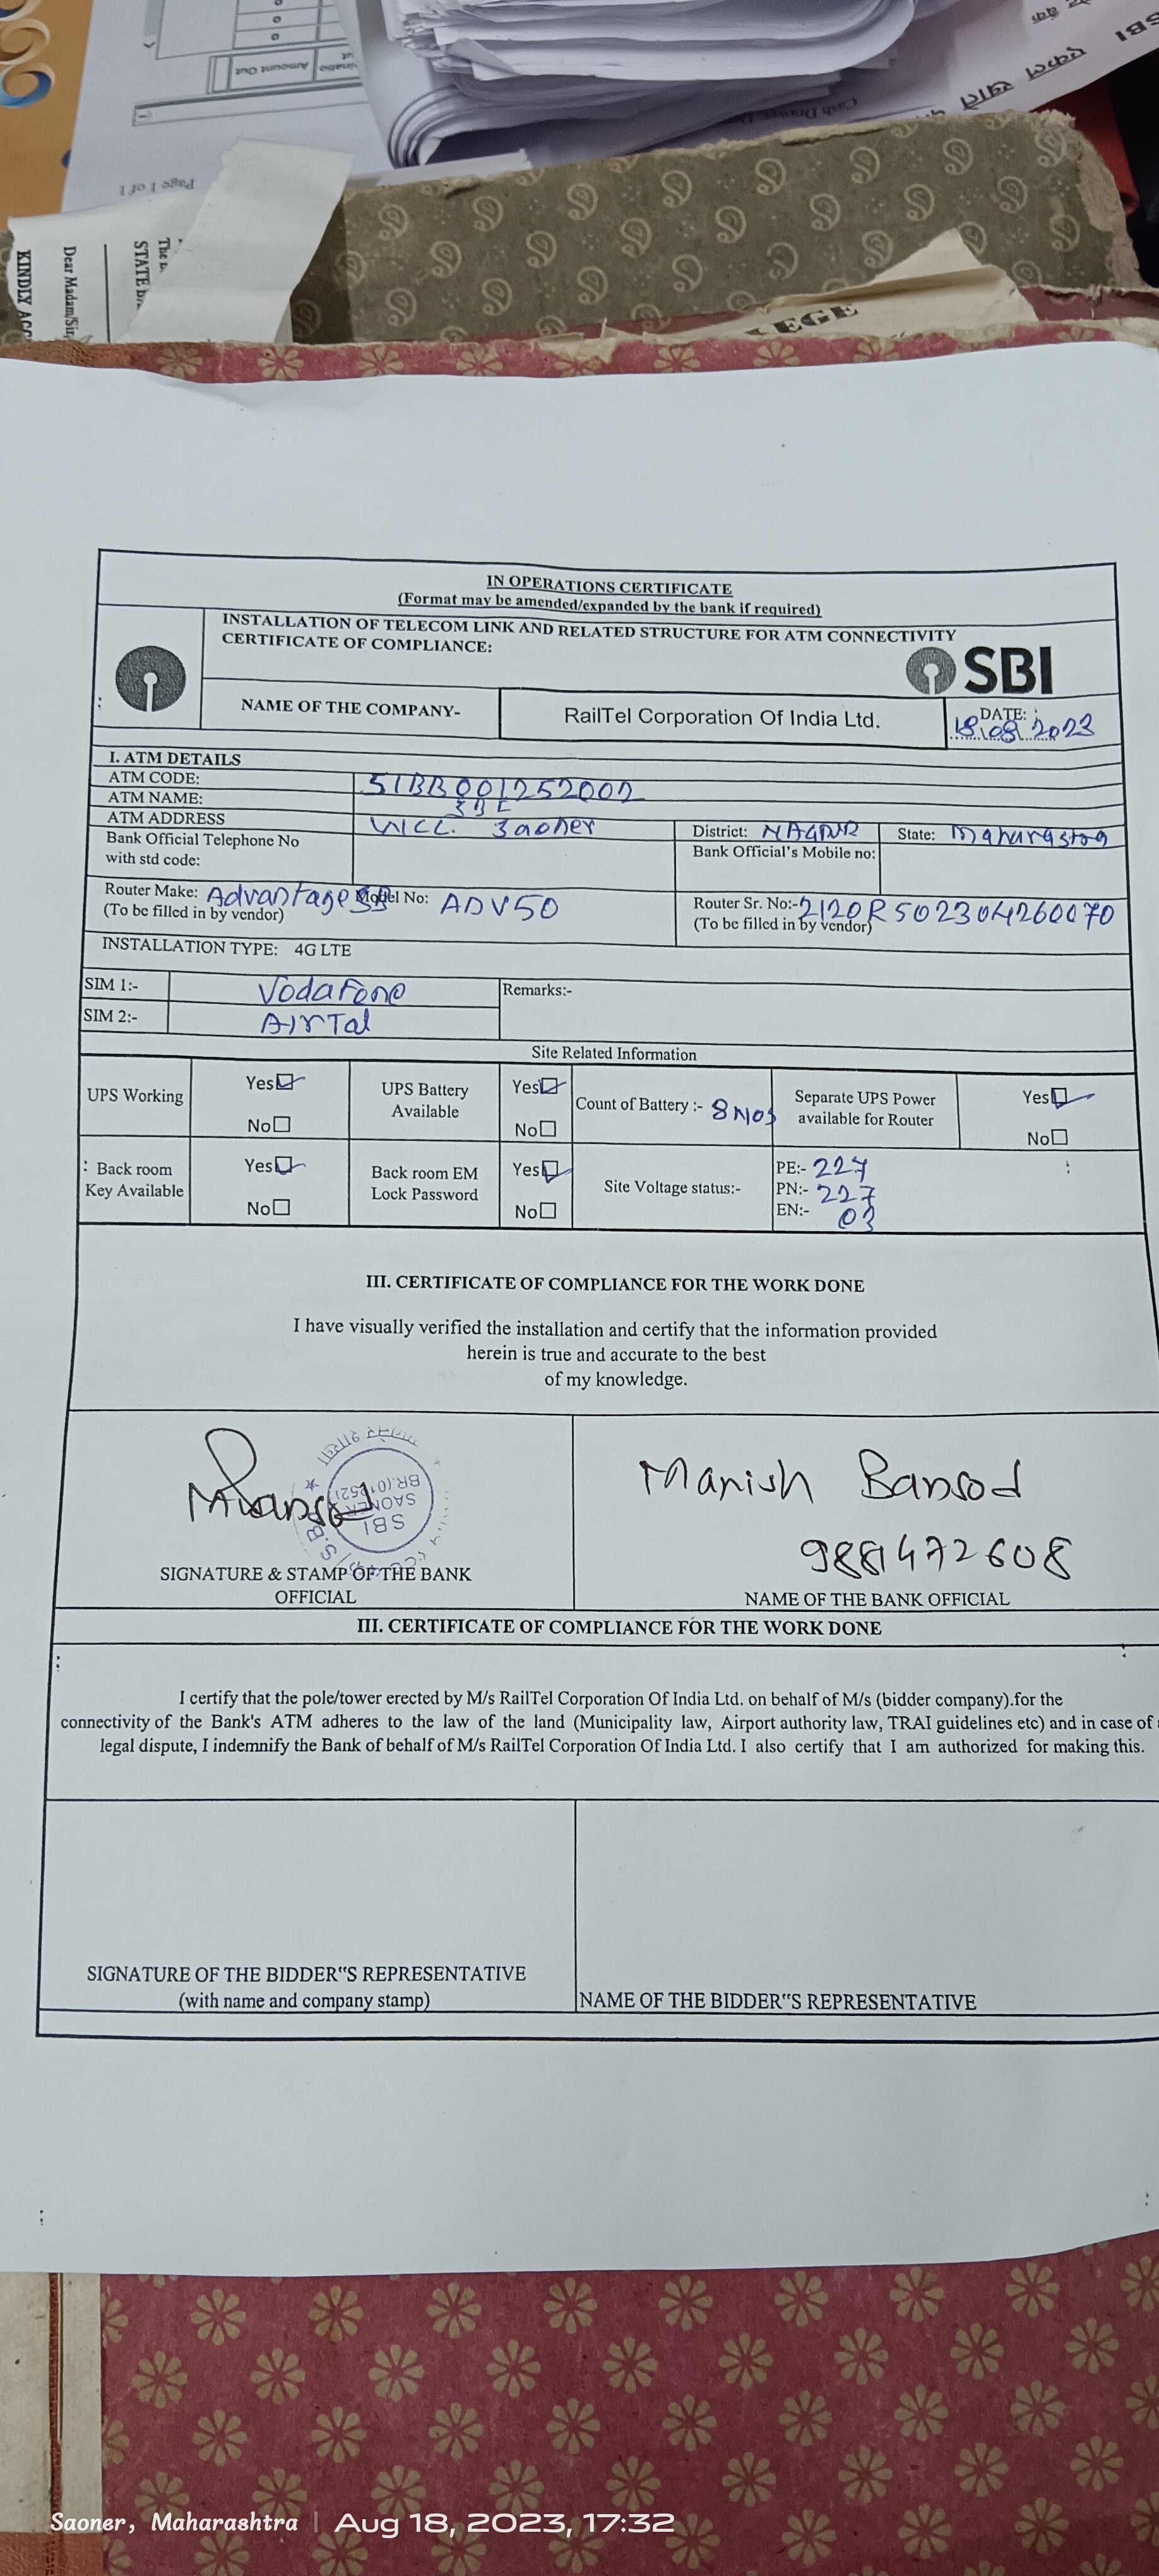 Amount Out
Cash Drawer
SBI
Page 1 of 1
STATE
Dear Madam/Sir,
KINDLY ACC
EGE
IN OPERATIONS CERTIFICATE
(Format may be amended/expanded by the bank if required)
INSTALLATION OF TELECOM LINK AND RELATED STRUCTURE FOR ATM CONNECTIVITY
CERTIFICATE OF COMPLIANCE:
SBI
NAME OF THE COMPANY-
RailTel Corporation Of India Ltd.
DATE:
18\08\2023
I. ATM DETAILS
ATM CODE: S1BB001252002
ATM NAME: SBI
ATM ADDRESS WCL. Saoner District: NAGPUR State: Maharastra
Bank Official Telephone No
with std code:
Bank Official's Mobile no:
Router Make: Advantage SB Model No: ADV50 Router Sr. No:-2120R502304260070
(To be filled in by vendor) (To be filled in by vendor)
INSTALLATION TYPE: 4G LTE
SIM 1:- Vodafone Remarks:-
SIM 2:- AirTal
Site Related Information
UPS Working Yes No
UPS Battery Available Yes No
Count of Battery :- 8 Nos
Separate UPS Power available for Router Yes No
Back room Key Available Yes No
Back room EM Lock Password Yes No
Site Voltage status:-
PE:- 227
PN:- 227
EN:- 03
III. CERTIFICATE OF COMPLIANCE FOR THE WORK DONE
I have visually verified the installation and certify that the information provided
herein is true and accurate to the best
of my knowledge.
SBI
SAONER
BR.(01252)
Manish Bansod
9881472608
SIGNATURE & STAMP OF THE BANK
OFFICIAL
NAME OF THE BANK OFFICIAL
III. CERTIFICATE OF COMPLIANCE FOR THE WORK DONE
I certify that the pole/tower erected by M/s RailTel Corporation Of India Ltd. on behalf of M/s (bidder company).for the
connectivity of the Bank's ATM adheres to the law of the land (Municipality law, Airport authority law, TRAI guidelines etc) and in case of
legal dispute, I indemnify the Bank of behalf of M/s RailTel Corporation Of India Ltd. I also certify that I am authorized for making this.
SIGNATURE OF THE BIDDER"S REPRESENTATIVE
(with name and company stamp)
NAME OF THE BIDDER"S REPRESENTATIVE
Saoner, Maharashtra | Aug 18, 2023, 17:32